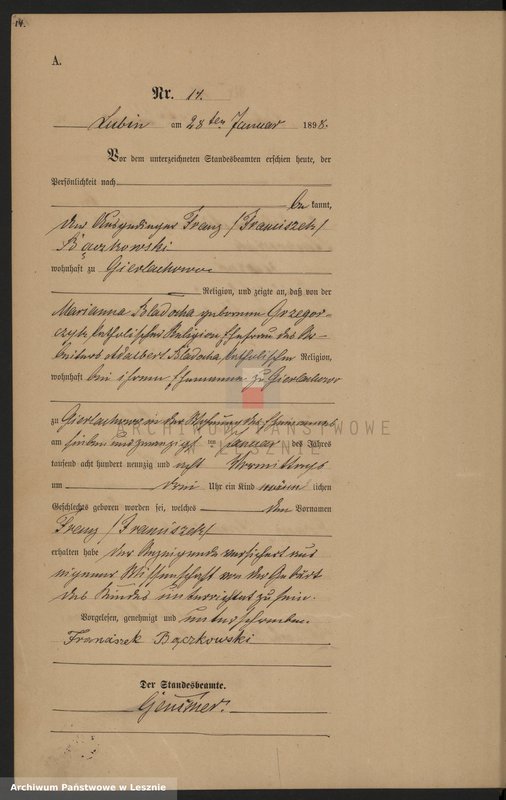 14.
A.
Nr. 14.
Lubin am 28 ten Januar 1898.
Vor dem unterzeichneten Standesbeamten erschien heute, der
Persönlichkeit nach
be kannt,
der Ausgedinger Franz /Franciszek/
Bączkowski
wohnhaft zu Gierlachowo
Religion, und zeigte an, daß von der
Marianna Bladocha geborenen Grzegor-
czyk katholischer Religion, Ehefrau des Ar-
beiters Adalbert Bladocha, katholischer Religion,
wohnhaft bei ihrem Ehemanne zu Gierlachowo
zu Gierlachowo in der Wohnung des Ehemannes
am sieben und zwanzigsten Januar des Jahres
tausend acht hundert neunzig und acht Vormittags
um drei Uhr ein Kind männ lichen
Geschlechts geboren worden sei, welches den Vornamen
Franz /Franciszek/
erhalten habe der Anzeigende versichert aus
eigener Wissenschaft von der Geburt
des Kindes unterrichtet zu sein.
Vorgelesen, genehmigt und unterschrieben
Franciszek Bączkowski
Der Standesbeamte.
ARCHIWUM PAŃSTWOWE
W LESZNIE
Archiwum Państwowe w Lesznie